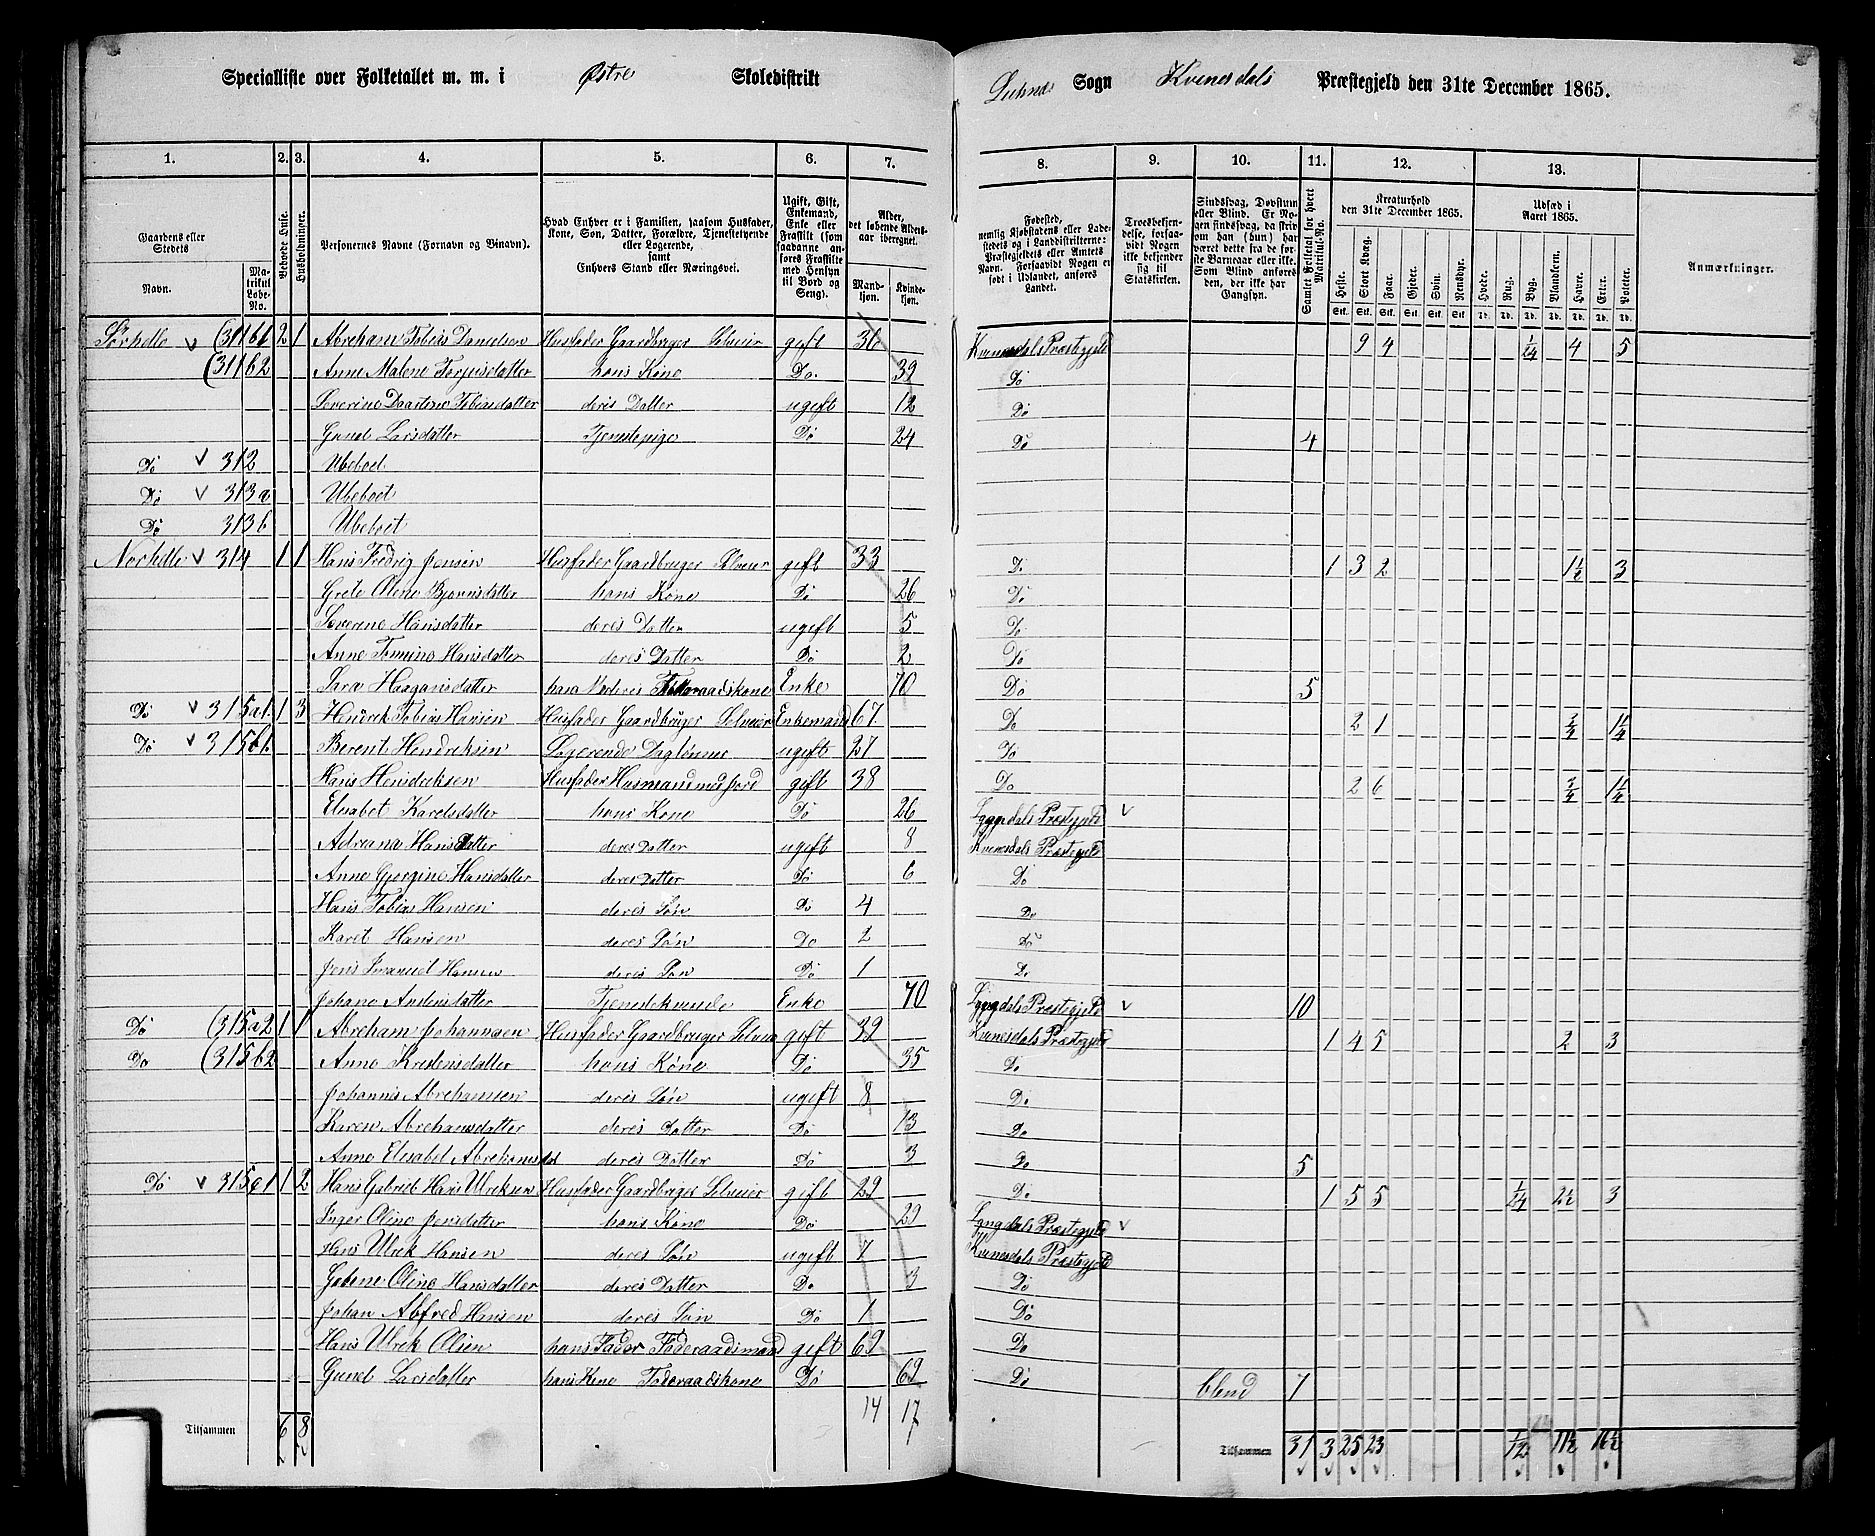 Specialliste over Folketallet m. m. i Østre Skoledistrikt
Sogn Kvinesdals Præstegjeld den 31te December 1865.
1. 2. 3. 4. 5. 6. 7. 8. 9. 10. 11. 12. 13.
Gaardens eller Stedets
Navn.
Matrikul Løbe-No.
Beboede Huse.
Husholdninger.
Personernes Navne (Fornavn og Tilnavn).
Hvad Enhver er i Familien, saasom Husfader, Kone, Søn, Datter, Forældre, Tjenestetyende eller Logerende, samt Enhvers Stand eller Næringsvei.
Ugift, Gift, Enkemand, Enke eller Fraskilt
Alder, det løbende Aldersaar iberegnet.
Mandkjøn. Kvindekjøn.
Fødested, nemlig Kjøbstadens eller Ladestedets og i Landdistrikterne: Præstegjeldets eller Amtets Navn. Forsaavidt Nogen er født i Udlandet, anføres Landet.
Troesbekjendelse, forsaavidt Nogen ikke bekjender sig til Statskirken.
Sindssvag, Døvstum eller Blind.
Samlet Folketal for hvert Matrikul-No.
Kreaturhold den 31te December 1865.
Heste. Stort Kvæg. Faar. Gjeder. Sviin. Rensdyr.
Udsæd i Aaret 1865.
Hvede. Rug. Byg. Blandkorn. Havre. Erter. Poteter.
Anmærkninger.
Sørhelle v (311b1 2 1 Abraham Tobias Danielsen Husfader Gaardbruger Selveier gift 36 Kvinesdals Præstegjeld 9 4 1/4 4 5
(311b2 Anne Malene Torjusdatter hans Kone Do. 39 Do
Severine Tobiasdatter deris Datter ugift 12 Do
Gunel Larsdatter Tjenstepige Do 24 Do 4
Do v 312 Ubeboet
Do v 313a Ubeboet
Do 313b Ubeboet
Norhelle v 314 1 1 Hans Fredrig Jensen Husfader Gaardbruger Selveier gift 33 Do 1 3 2 1½ 3
Grete Oline Bjørnsdatter hans Kone Do 26 Do
Severine Hansdatter deris Datter ugift 5 Do
Anne Hansdatter deres Datter Do 2 Do
Sara Haagansdatter hans Moder Enke 70 Do 5
Do v 315a1 1 3 Hendrek Tobias Hansen Husfader Gaardbruger Selveier Enkemand 67 Do 2 1 3/4 1¼
Do v 315b1 Berent Hendreksen Logerende Daglønner ugift 27 Do
Hans Hendreksen Husfader Husmand med Jord gift 38 Do 2 6 3/4 1¼
Elisabet Karelsdatter hans Kone Do 26 Lyngdals Præstegjeld v
Adriana Hansdatter deres Datter ugift 8 Kvinesdals Præstegjeld
Anne Gjorgine Hansdatter deres Datter Do 6 Do
Hans Tobias Hansen deres Søn Do 4 Do
Karel Hansen deres Søn Do 2 Do
Jens Emanuel Hansen deres Søn Do 1 Do
Johane Andersdatter Tjenestekvinde Enke 70 Lyngdals Præstegjeld v 10
Do (315a2 1 1 Abreham Johannesen Husfader Gaardbruger Selveier gift 39 Kvinesdals Præstegjeld 1 4 5 2 3
Do (315b2 Anne Kristensdatter hans Kone Do 35 Do
Johannis Abrehamsen deris Søn ugift 8 Do
Karen Abrehamsdatter deres Datter Do 13 Do
Anne Elisabet Abrehamsdat deres Datter Do 3 Do 5
Do v 315c1 1 2 Hans Gabrieb Hans Ulreksen Husfader Gaardbruger Selveier gift 29 Do 1 5 5 1/4 2½ 3
Inger Oline Jensdatter hans Kone Do 29 Lyngdals Præstegjeld v
Hans Ulrek Hansen deres Søn ugift 7 Kvinesdals Præstegjeld
Gabene Oline Hansdatter deres Datter Do 3 Do
Johan Alfred Hansen deres Søn Do 1 Do
Hans Ulrek Olsen hans Fader Føderaadsmand gift 69 Do
Gunel Larsdatter hans Kone Føderaadskone Do 69 Do blend 7
14 17
Tilsammen 6 8
Tilsammen 31 3 25 23 1/2 11½ 16½